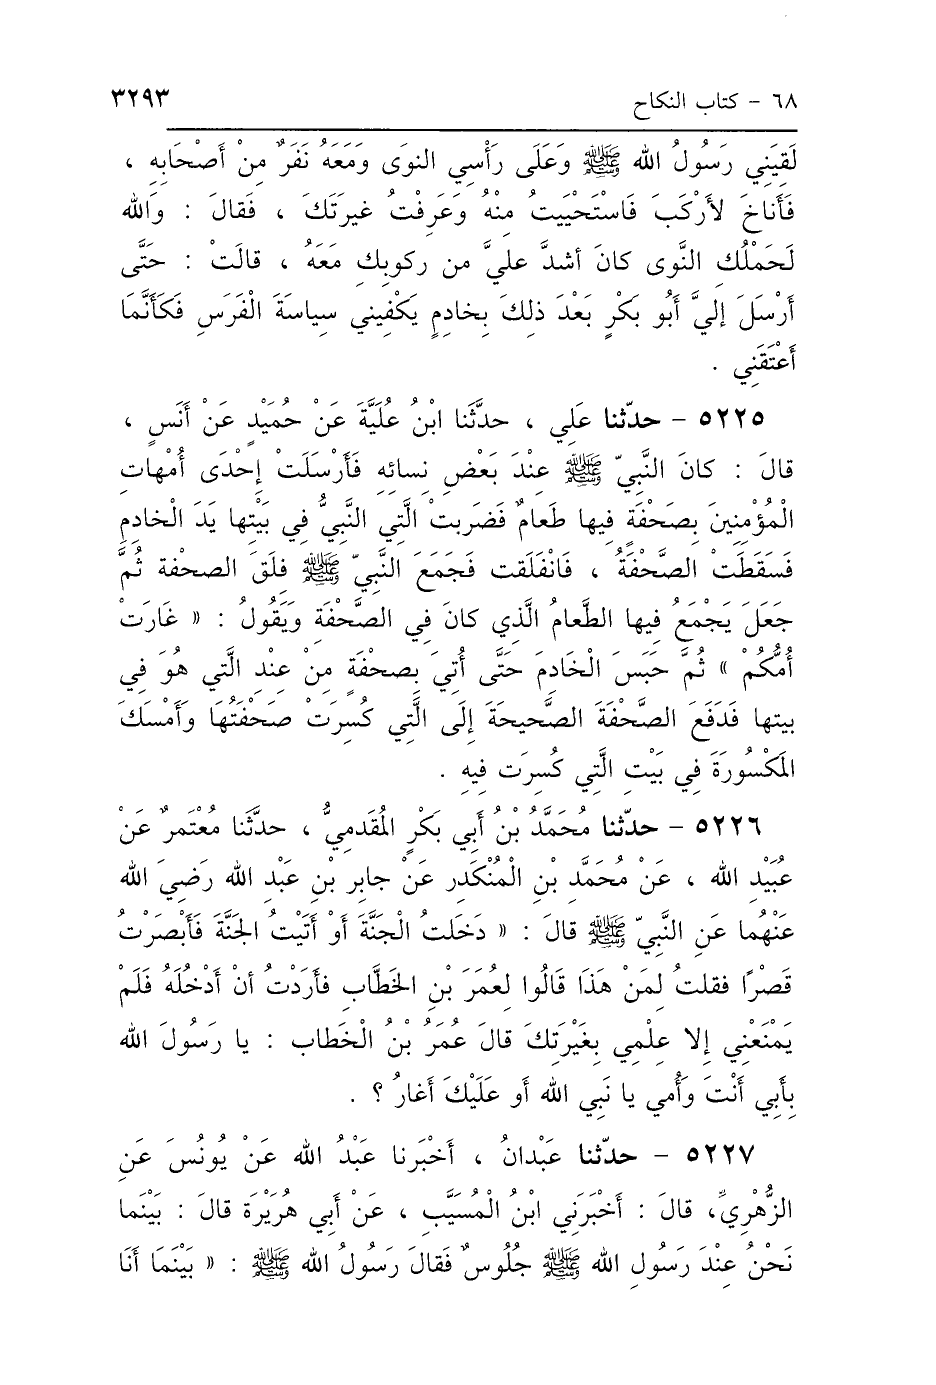 ٦٨ - كتاب النكاح ٣٢٩٣
لَقِيَنِي رَسُولُ الله ﷺ وَعَلَى رَأْسِي النوَى وَمَعَهُ نَفَرٌ مِنْ أَصْحَابِهِ ،
فَأَناخَ لأَرْكَبَ فَاستَحْيَيتُ مِنْهُ وَعَرِفْتُ غيرَتَكَ ، فَقالَ : وَالله
لَحَمْلُكِ النَّوى كانَ أشدَّ عليَّ من ركوبِكِ مَعَهُ ، قالَتْ : حَتَّى
أَرْسَلَ إليَّ أَبُو بَكْرٍ بَعْدَ ذلِكَ بِخادِمٍ يَكْفِيني سِياسَةَ الْفَرَسِ فَكَأَنَّمَا
أَعتَقَنِي .
٥٢٢٥ - حدّثنا عَلَي ، حدَّثَنا ابْنُ عُلَيَّةَ عَنْ حُمَيْدٍ عَنْ أَنَسٍ ،
قالَ : كانَ النَّبِيّ ﷺ عِنْدَ بَعْضِ نِسائِهِ فَأَرْسَلَتْ إِحْدَى أُمْهاتِ
الْمُؤْمِنِينَ بِصَحْفَةٍ فيها طَعامٌ فَضَرِبتْ الَّتِي النَّبِيُّ فِي بَيْتِها يَدَ الْخادِمِ
فَسَقَطَتْ الصَّحْفَةُ ، فَانْفَلَقت فَجَمَعَ النَّبِيّ ﷺ فِلَقَ الصحْفة ثُمَّ
جَعَلَ يَجْمَعُ فِيها الطَّعامُ الَّذِي كانَ فِي الصَّحْفَةِ وَيَقُولُ : « غَارَتْ
أُمُّكُمْ » ثُمَّ حَبَسَ الْخَادِمَ حَتَّى أُتِيَ بِصحْفَةٍ مِنْ عِنْدِ الَّتي هُوَ فِي
بيتها فَدَفَعَ الصَّحْفَةَ الصَّحيحَةَ إِلَى الَّتِي كُسرَتْ صَحْفَتُهَا وأَمْسَكَ
المَكْسُورَةَ فِي بَيْتِ الَّتِي كُسِرَت فِيهِ .
٥٢٢٦ - حدّثنا مُحَمَّدُ بْنُ أَبِي بَكْرٍ المُقَدمِيُّ ، حدَّثَنا مُعْتَمرٌ عَنْ
عُبَيْدِ الله ، عَنْ مُحَمَّدِ بْنِ الْمُنْكَدر عَنْ جابرِ بْنِ عَبْدِ الله رَضيَ الله
عَنْهُما عَنِ النَّبِيّ ﷺ قالَ : « دَخَلتُ الْجنَّةَ أَوْ أَتَيْتُ الجَنَّةَ فَأَبْصَرْتُ
قَصْرًا فقلتُ لِمَنْ هَذَا قَالُوا لِعُمَرَ بْنِ الخَطَّابِ فأَرَدْتُ أنْ أَدْخُلَهُ فَلَمْ
يَمْنَعْنِي إلا عِلْمِي بِغَيْرَتِكَ قالَ عُمَرُ بْنُ الْخَطاب : يا رَسُولَ الله
بِأَبي أَنْتَ وَأُمي يا نَبِي الله أَو عَلَيْكَ أَغارُ ؟ .
٥٢٢٧ - حدّثنا عَبْدانُ ، أَخْبَرنا عَبْدُ الله عَنْ يُونُسَ عَنِ
الزُّهْرِيِّ، قالَ : أَخْبَرَنِي ابْنُ الْمُسَيَّب ، عَنْ أَبِي هُرَيْرَةَ قالَ : بَيْنَما
نَحْنُ عِنْدَ رَسُولِ الله ﷺ جُلُوسٌ فَقالَ رَسُولُ الله ﷺ : « بَيْنَمَا أَنَا